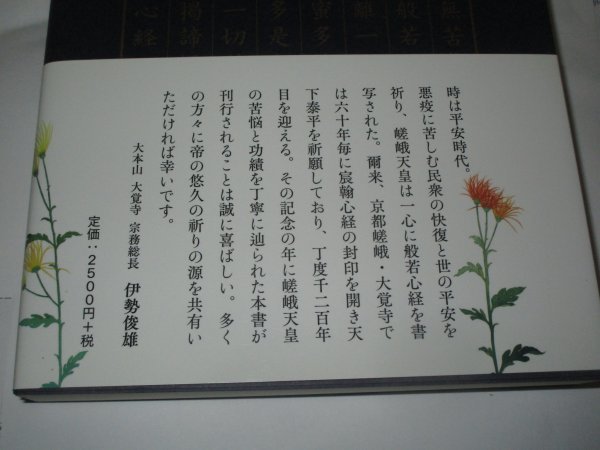 無苦
般若
離一
蜜多
多是
一切
揭諦
心経
時は平安時代。
悪疫に苦しむ民衆の快復と世の平安を
祈り、嵯峨天皇は一心に般若心経を書
写された。爾来、京都嵯峨・大覚寺で
は六十年毎に宸翰心経の封印を開き天
下泰平を祈願しており、丁度千二百年
目を迎える。その記念の年に嵯峨天皇
の苦悩と功績を丁寧に辿られた本書が
刊行されることは誠に喜ばしい。多く
の方々に帝の悠久の祈りの源を共有い
ただければ幸いです。
大本山 大覚寺 宗務総長 伊勢俊雄
定価：2500円＋税